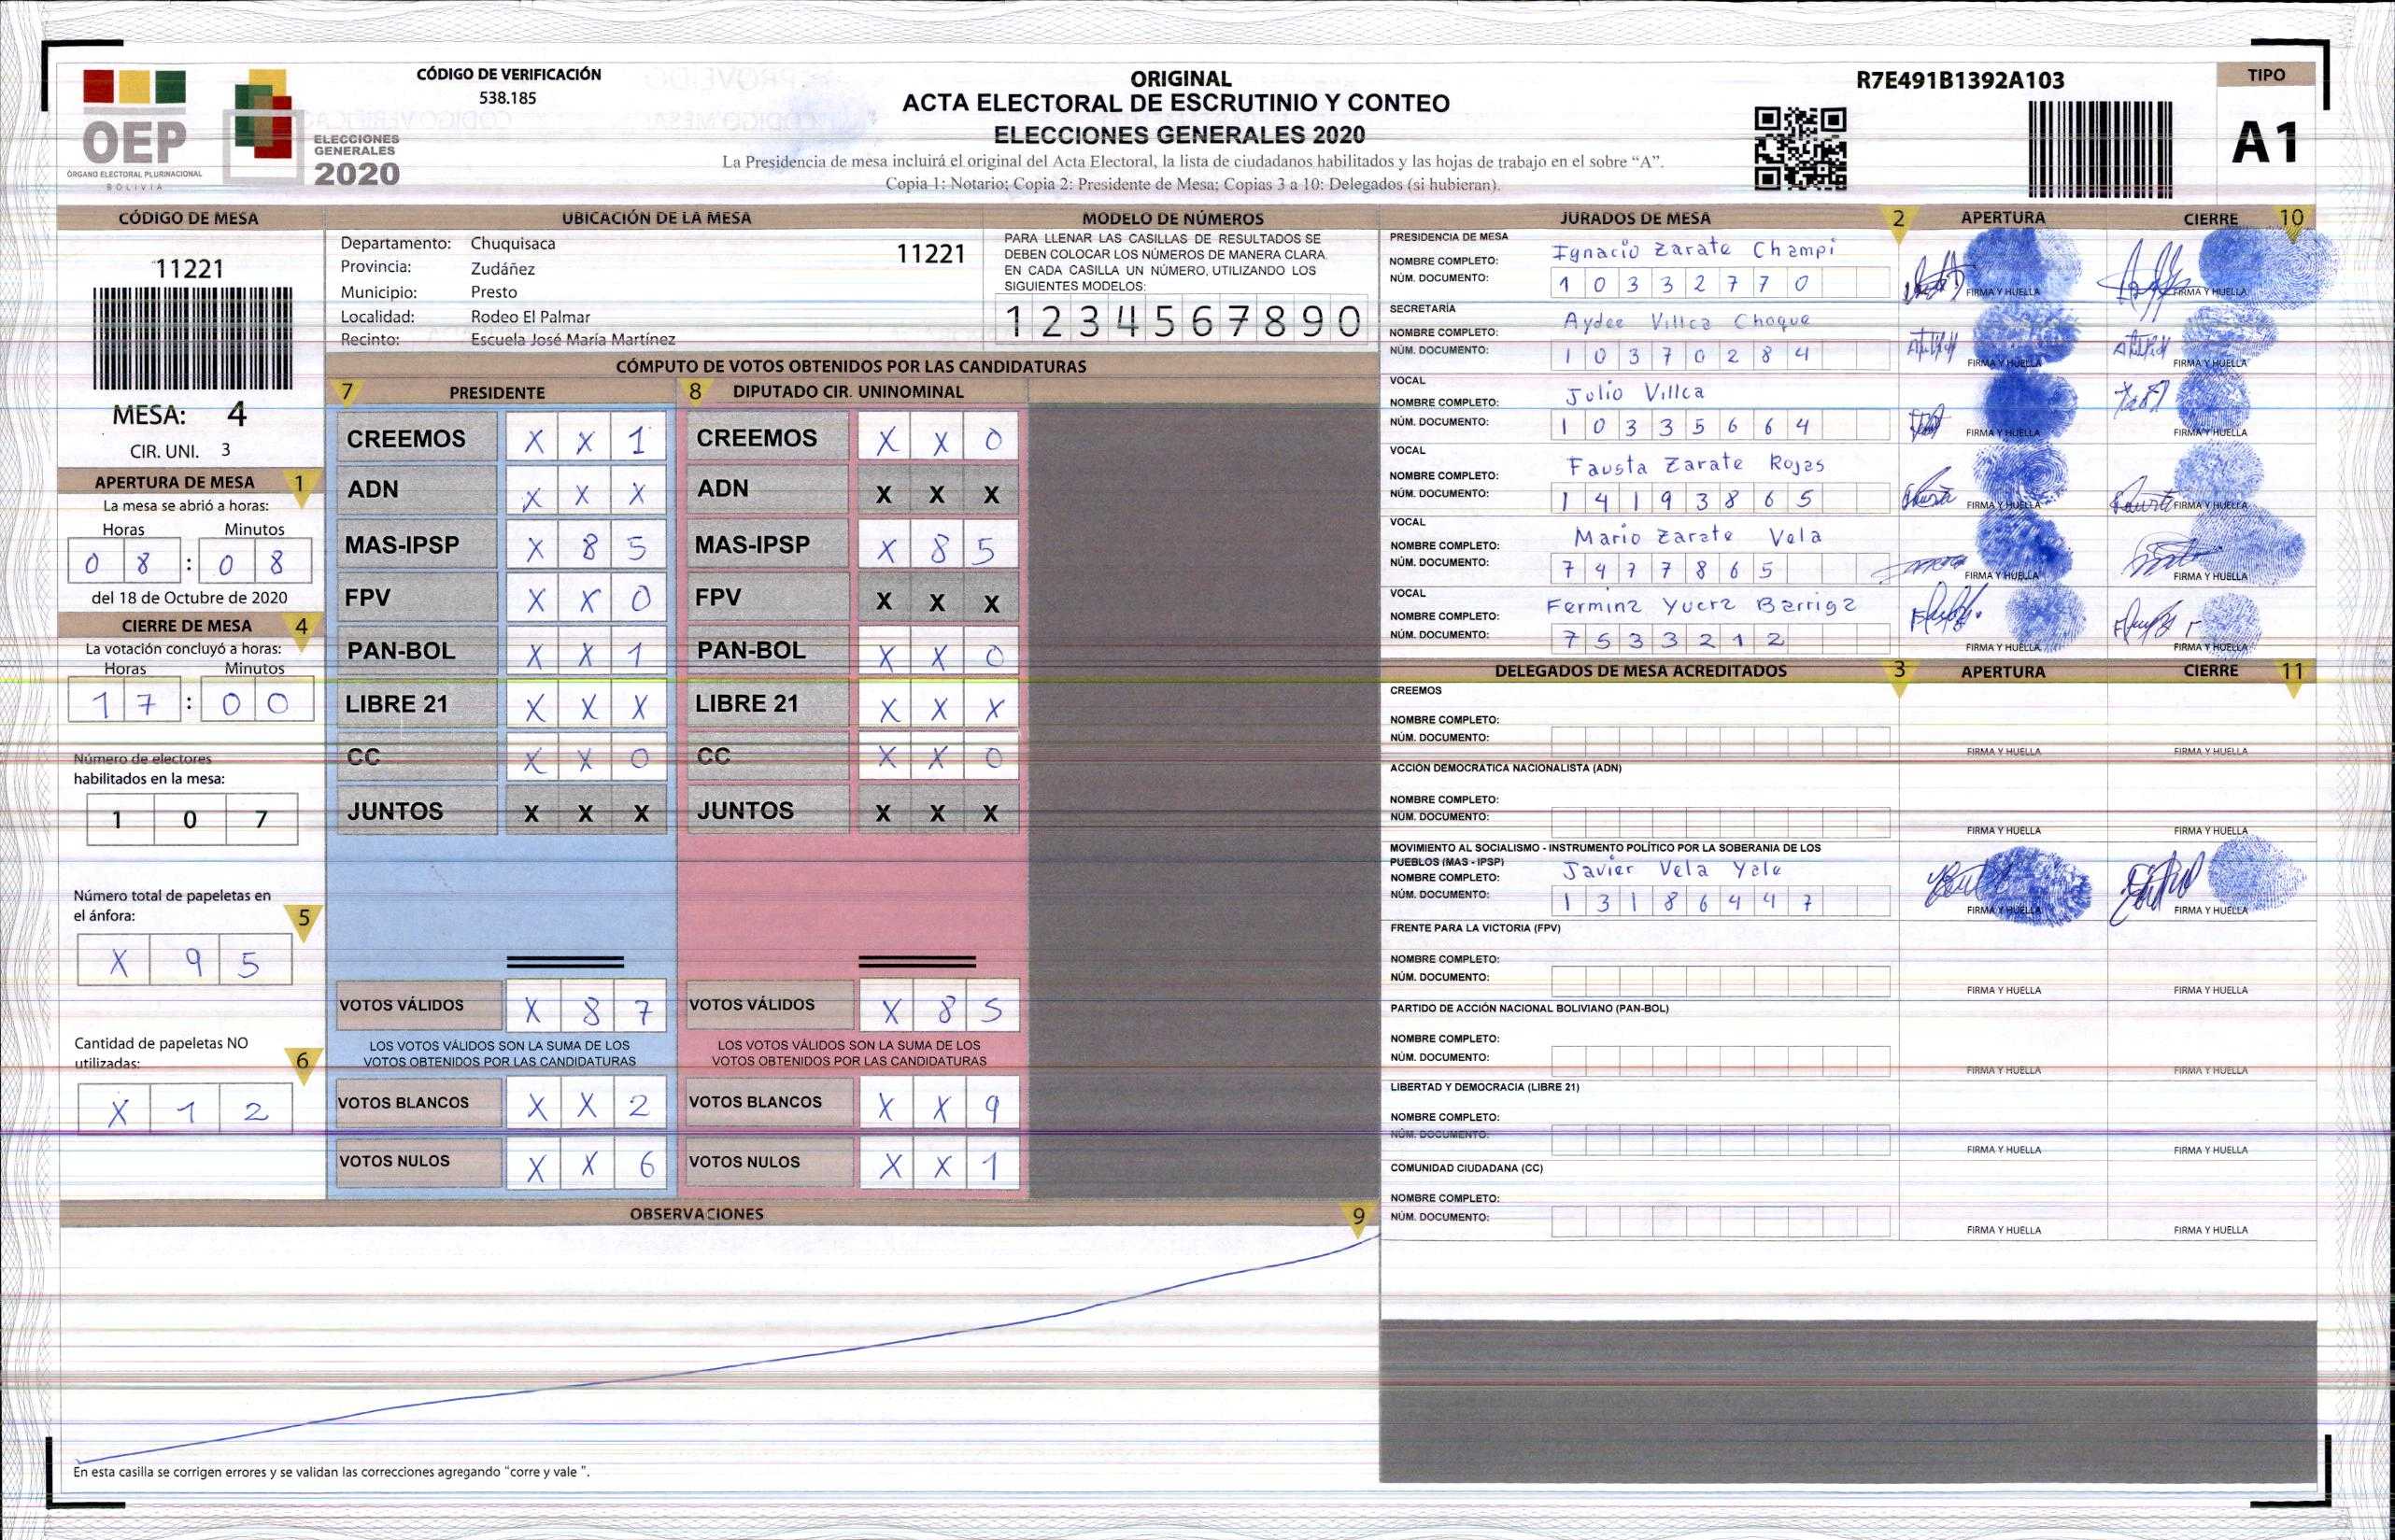 OEP
ÓRGANO ELECTORAL PLURINACIONAL
BOLIVIA
ELECCIONES
GENERALES
2020
CÓDIGO DE VERIFICACIÓN
538.185
ORIGINAL
ACTA ELECTORAL DE ESCRUTINIO Y CONTEO
ELECCIONES GENERALES 2020
La Presidencia de mesa incluirá el original del Acta Electoral, la lista de ciudadanos habilitados y las hojas de trabajo en el sobre “A”.
Copia 1: Notario; Copia 2: Presidente de Mesa; Copias 3 a 10: Delegados (si hubieran).
R7E491B1392A103
TIPO
A1
CÓDIGO DE MESA
11221
MESA: 4
CIR. UNI. 3
APERTURA DE MESA 1
La mesa se abrió a horas:
Horas Minutos
0 8 : 0 8
del 18 de Octubre de 2020
CIERRE DE MESA 4
La votación concluyó a horas:
Horas Minutos
1 7 : 0 0
Número de electores
habilitados en la mesa:
1 0 7
Número total de papeletas en
el ánfora: 5
X 9 5
Cantidad de papeletas NO
utilizadas: 6
X 1 2
UBICACIÓN DE LA MESA
Departamento: Chuquisaca 11221
Provincia: Zudáñez
Municipio: Presto
Localidad: Rodeo El Palmar
Recinto: Escuela José María Martínez
MODELO DE NÚMEROS
PARA LLENAR LAS CASILLAS DE RESULTADOS SE
DEBEN COLOCAR LOS NÚMEROS DE MANERA CLARA.
EN CADA CASILLA UN NÚMERO, UTILIZANDO LOS
SIGUIENTES MODELOS:
1 2 3 4 5 6 7 8 9 0
CÓMPUTO DE VOTOS OBTENIDOS POR LAS CANDIDATURAS
7 PRESIDENTE 8 DIPUTADO CIR. UNINOMINAL
CREEMOS X X 1 CREEMOS X X 0
ADN X X X ADN X X X
MAS-IPSP X 8 5 MAS-IPSP X 8 5
FPV X X 0 FPV X X X
PAN-BOL X X 1 PAN-BOL X X 0
LIBRE 21 X X X LIBRE 21 X X X
CC X X 0 CC X X 0
JUNTOS X X X JUNTOS X X X
VOTOS VÁLIDOS X 8 7 VOTOS VÁLIDOS X 8 5
LOS VOTOS VÁLIDOS SON LA SUMA DE LOS LOS VOTOS VÁLIDOS SON LA SUMA DE LOS
VOTOS OBTENIDOS POR LAS CANDIDATURAS VOTOS OBTENIDOS POR LAS CANDIDATURAS
VOTOS BLANCOS X X 2 VOTOS BLANCOS X X 9
VOTOS NULOS X X 6 VOTOS NULOS X X 1
OBSERVACIONES 9
En esta casilla se corrigen errores y se validan las correcciones agregando “corre y vale ”.
JURADOS DE MESA 2 APERTURA CIERRE 10
PRESIDENCIA DE MESA
NOMBRE COMPLETO: Ignacio Zarate Champi
NÚM. DOCUMENTO: 1 0 3 3 2 7 7 0 FIRMA Y HUELLA FIRMA Y HUELLA
SECRETARÍA
NOMBRE COMPLETO: Aydee Villca Choque
NÚM. DOCUMENTO: 1 0 3 7 0 2 8 4 FIRMA Y HUELLA FIRMA Y HUELLA
VOCAL
NOMBRE COMPLETO: Julio Villca
NÚM. DOCUMENTO: 1 0 3 3 5 6 6 4 FIRMA Y HUELLA FIRMA Y HUELLA
VOCAL
NOMBRE COMPLETO: Fausta Zarate Rojas
NÚM. DOCUMENTO: 1 4 1 9 3 8 6 5 FIRMA Y HUELLA FIRMA Y HUELLA
VOCAL
NOMBRE COMPLETO: Mario Zarate Vela
NÚM. DOCUMENTO: 7 4 7 7 8 6 5 FIRMA Y HUELLA FIRMA Y HUELLA
VOCAL
NOMBRE COMPLETO: Fermina Yucra Barriga
NÚM. DOCUMENTO: 7 5 3 3 2 1 2 FIRMA Y HUELLA FIRMA Y HUELLA
DELEGADOS DE MESA ACREDITADOS 3 APERTURA CIERRE 11
CREEMOS
NOMBRE COMPLETO:
NÚM. DOCUMENTO: FIRMA Y HUELLA FIRMA Y HUELLA
ACCIÓN DEMOCRÁTICA NACIONALISTA (ADN)
NOMBRE COMPLETO:
NÚM. DOCUMENTO: FIRMA Y HUELLA FIRMA Y HUELLA
MOVIMIENTO AL SOCIALISMO - INSTRUMENTO POLÍTICO POR LA SOBERANIA DE LOS
PUEBLOS (MAS - IPSP)
NOMBRE COMPLETO: Javier Vela Yale
NÚM. DOCUMENTO: 1 3 1 8 6 4 4 7 FIRMA Y HUELLA FIRMA Y HUELLA
FRENTE PARA LA VICTORIA (FPV)
NOMBRE COMPLETO:
NÚM. DOCUMENTO: FIRMA Y HUELLA FIRMA Y HUELLA
PARTIDO DE ACCIÓN NACIONAL BOLIVIANO (PAN-BOL)
NOMBRE COMPLETO:
NÚM. DOCUMENTO: FIRMA Y HUELLA FIRMA Y HUELLA
LIBERTAD Y DEMOCRACIA (LIBRE 21)
NOMBRE COMPLETO:
NÚM. DOCUMENTO: FIRMA Y HUELLA FIRMA Y HUELLA
COMUNIDAD CIUDADANA (CC)
NOMBRE COMPLETO:
NÚM. DOCUMENTO: FIRMA Y HUELLA FIRMA Y HUELLA